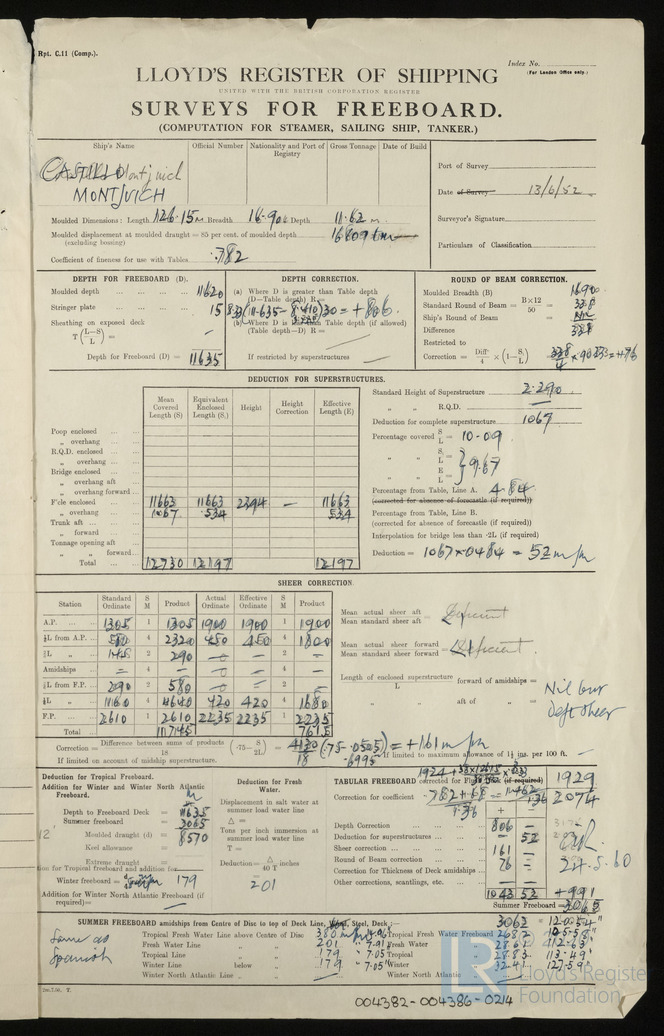 Rpt. C.11 (Comp.).
Index No.
(For London Office only.)
LLOYD'S REGISTER OF SHIPPING
UNITED WITH THE BRITISH CORPORATION REGISTER
SURVEYS FOR FREEBOARD.
(COMPUTATION FOR STEAMER, SAILING SHIP, TANKER.)
Ship's Name Official Number Nationality and Port of Registry Gross Tonnage Date of Build
CASTILLO Montjuich
MONTJVICH
Port of Survey
Date of Survey 13/6/52
Surveyor's Signature
Particulars of Classification
Moulded Dimensions: Length 126.15 m Breadth 16.90 Depth 11.62 m
Moulded displacement at moulded draught = 85 per cent. of moulded depth
(excluding bossing)
Coefficient of fineness for use with Tables .782
DEPTH FOR FREEBOARD (D).
Moulded depth 11620
Stringer plate 15
Sheathing on exposed deck
T (L-S/L) =
Depth for Freeboard (D) = 11635
DEPTH CORRECTION.
(a) Where D is greater than Table depth
(D-Table depth) R =
= +806
(b) Where D is less than Table depth (if allowed)
(Table depth-D) R =
If restricted by superstructures
ROUND OF BEAM CORRECTION.
Moulded Breadth (B) 16.900
Standard Round of Beam = B×12/50 = 338
Ship's Round of Beam = Nil
Difference 338
Restricted to
Correction = Diff/4 × (1-S/L) 338/4 = +76
DEDUCTION FOR SUPERSTRUCTURES.
Mean Covered Length (S) Equivalent Enclosed Length (S₁) Height Height Correction Effective Length (E)
Poop enclosed
„ overhang
R.Q.D. enclosed
„ overhang
Bridge enclosed
„ overhang aft
„ overhang forward
F'cle enclosed 11663 11663 2394 — 11663
„ overhang 1067 534 534
Trunk aft
„ forward
Tonnage opening aft
„ „ forward
Total 12730 12197 12197
Standard Height of Superstructure 2.290
„ „ R.Q.D. —
Deduction for complete superstructure 1067
Percentage covered S/L = 10.09
„ „ S₁/L =
„ „ E/L = } 9.67
Percentage from Table, Line A. 4.84
(corrected for absence of forecastle (if required))
Percentage from Table, Line B.
(corrected for absence of forecastle (if required))
Interpolation for bridge less than ·2L (if required)
Deduction = 1067 × .0484 = 52 m/m
SHEER CORRECTION.
Station Standard Ordinate S M Product Actual Ordinate Effective Ordinate S M Product
A.P. 1305 1 1305 1900 1900 1 1900
⅙L from A.P. 580 4 2320 450 450 4 1800
⅓L „ 145 2 290 — — 2 —
Amidships — 4 — — — 4 —
⅓L from F.P. 290 2 580 — — 2 —
⅙L „ 1160 4 4640 420 420 4 1680
F.P. 2610 1 2610 2235 2235 1 2235
Total 11745 7615
Mean actual sheer aft
Mean standard sheer aft = Deficient
Mean actual sheer forward
Mean standard sheer forward = Deficient
Length of enclosed superstructure forward of amidships =
L
„ „ aft of „ =
Nil bur
deft sheer
Correction = Difference between sums of products/18 (·75 - S/2L) = 4130/18 (.75-.0505) = +161 m/m
.6995
If limited on account of midship superstructure.
If limited to maximum allowance of 1½ ins. per 100 ft. —
Deduction for Tropical Freeboard.
Addition for Winter and Winter North Atlantic Freeboard.
Depth to Freeboard Deck = 11635
Summer freeboard = 3065
Moulded draught (d) = 8570
Keel allowance =
Extreme draught =
Winter freeboard = 179
Addition for Winter North Atlantic Freeboard (if required) =
Deduction for Fresh Water.
Displacement in salt water at summer load water line
Δ =
Tons per inch immersion at summer load water line
T =
Deduction = Δ/40 T inches
= 201
TABULAR FREEBOARD corrected for Flush Deck (if required) 1929
Correction for coefficient .782 + .68/1.36 = 1.462/1.36 2074
+ —
Depth Correction 806 —
Deduction for superstructures — 52
Sheer correction 161 —
Round of Beam correction 76 —
Correction for Thickness of Deck amidships — —
Other corrections, scantlings, etc.
1043 52 +991
24.5.60
Summer Freeboard = 3065
SUMMER FREEBOARD amidships from Centre of Disc to top of Deck Line, Wood, Steel, Deck:—
Same as
Spanish
Tropical Fresh Water Line above Centre of Disc 380 m/m
Fresh Water Line „ „ 201 7.91"
Tropical Line „ „ 179 7.05"
Winter Line below „ 179 7.05"
Winter North Atlantic Line „ „
Tropical Fresh Water Freeboard 2682
Fresh Water „ 2861 112.63"
Tropical „ 2883 113.49"
Winter „ 3241 127.59"
Winter North Atlantic „
LR
Lloyd's Register
Foundation
004382-004386-0214